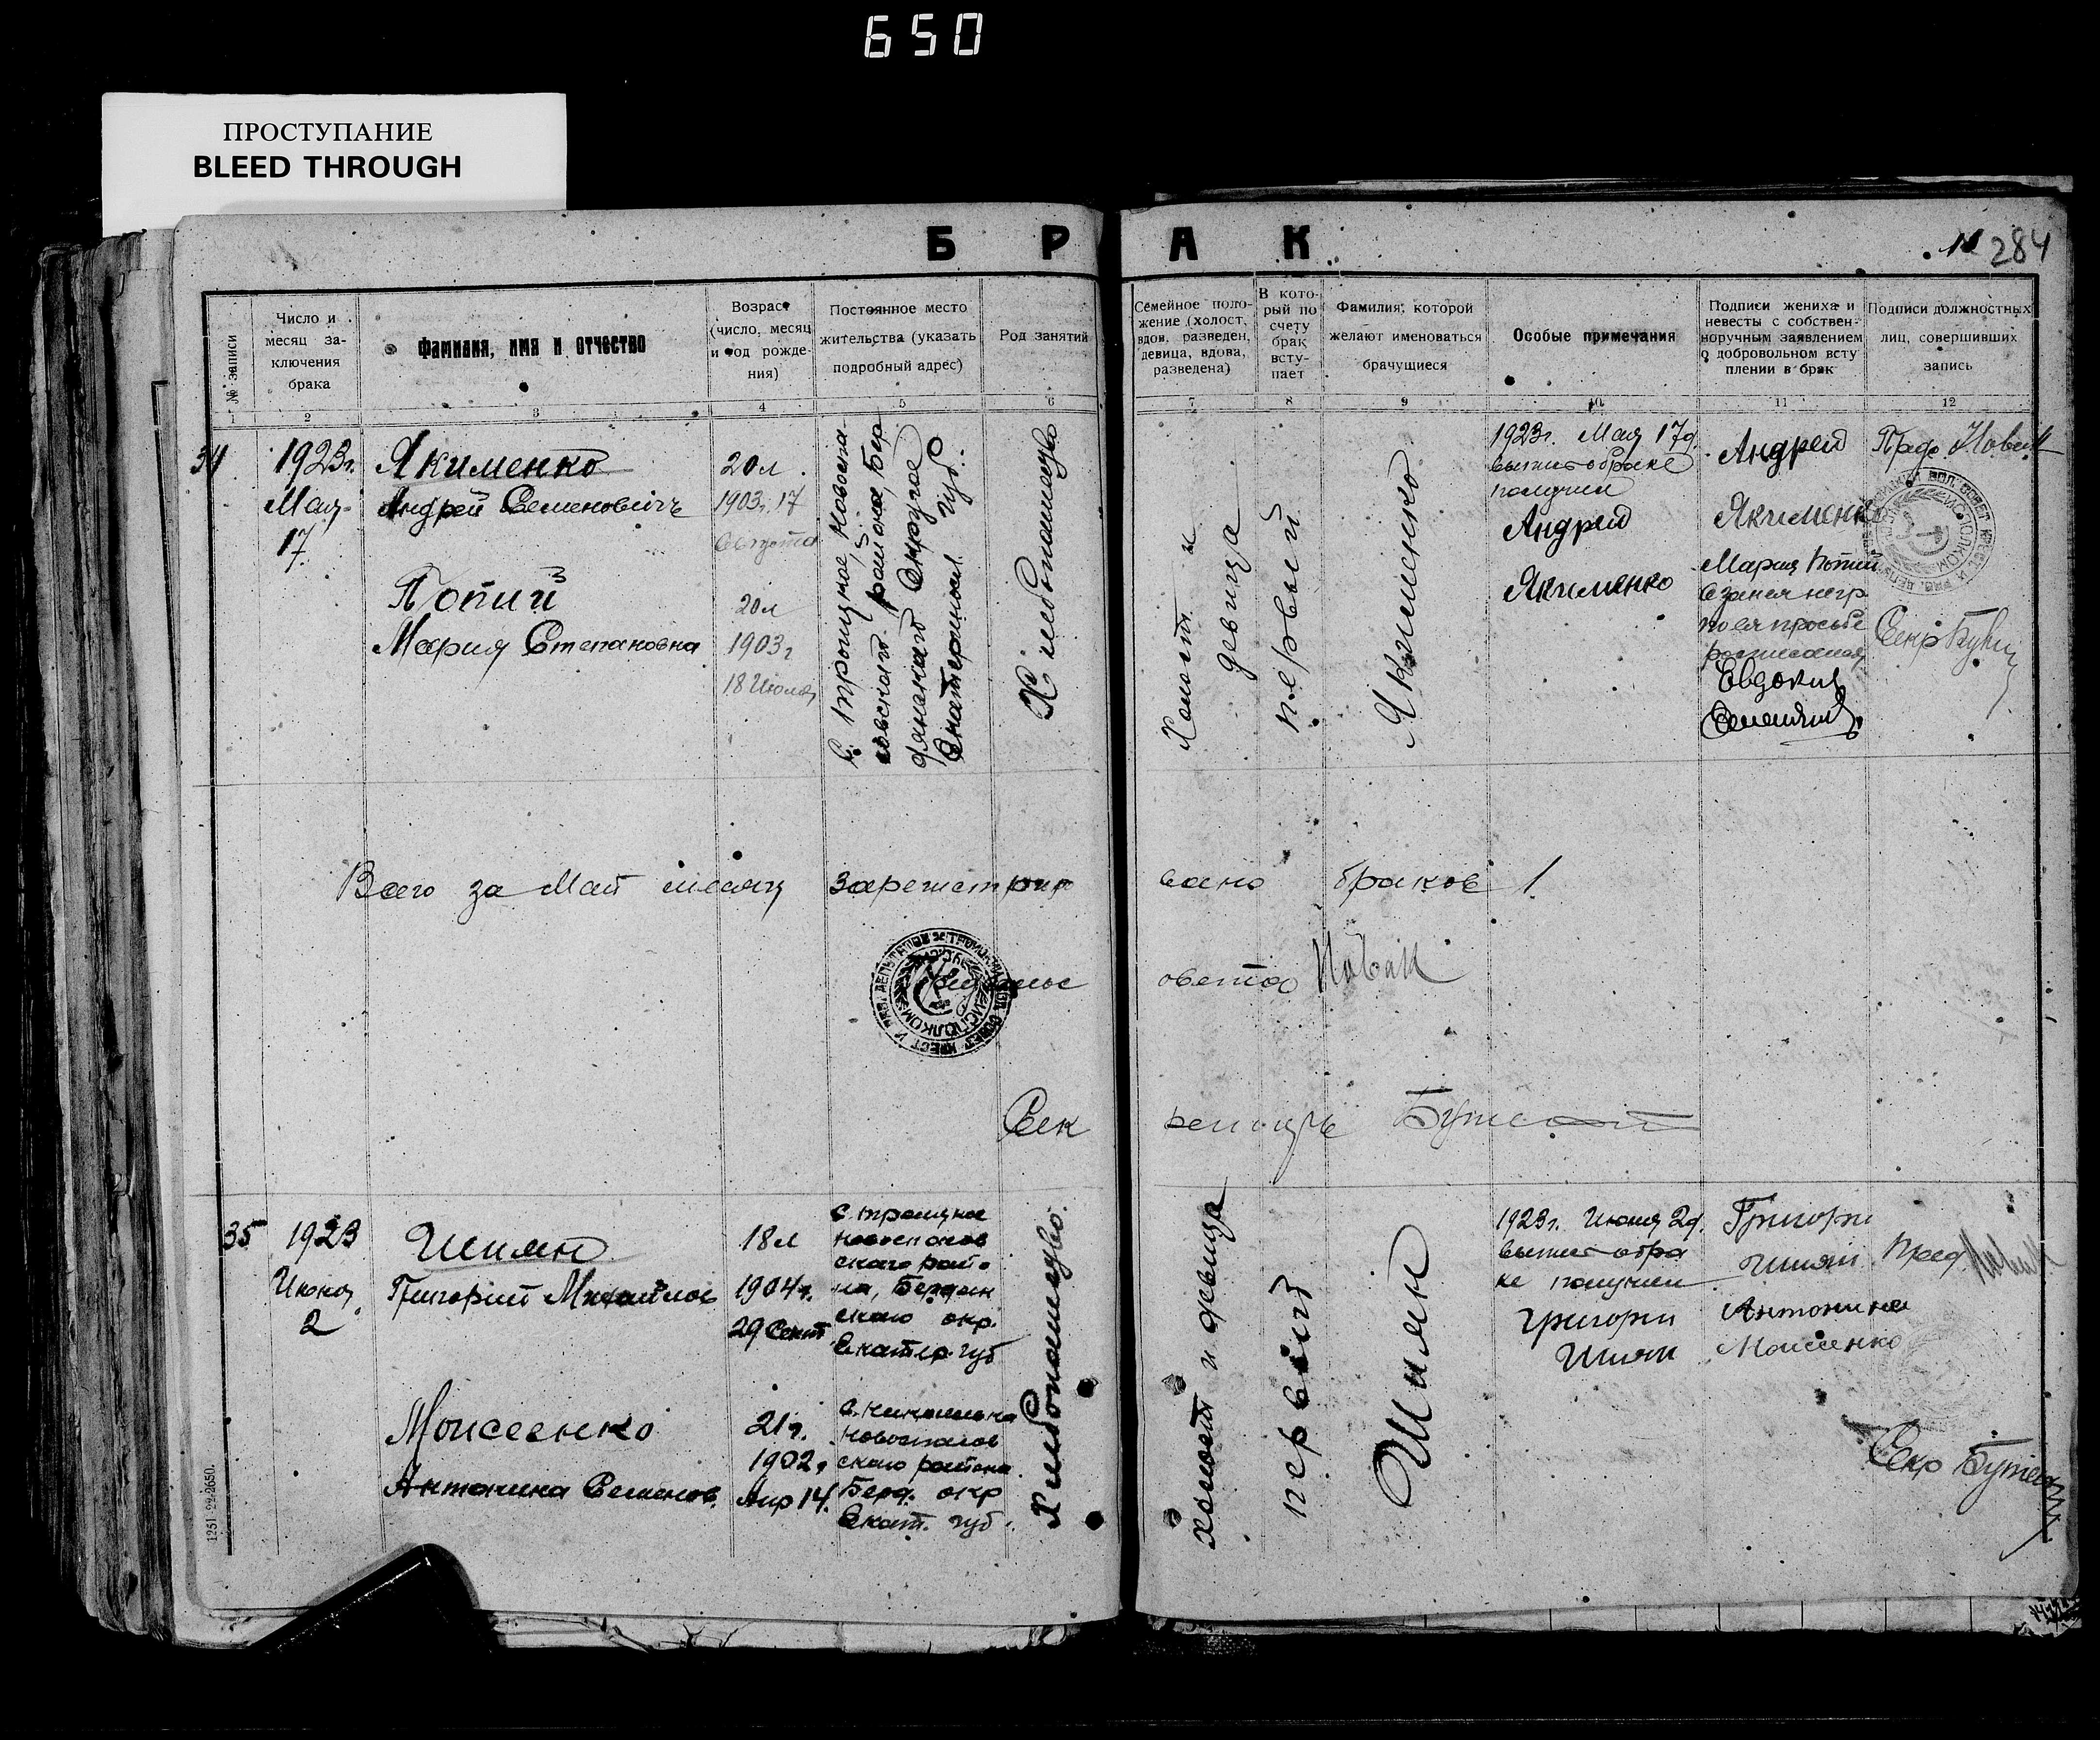 650
ПРОСТУПАНИЕ
BLEED THROUGH
Б Р А К
284
№ записи
Число и месяц за-
ключения
брака
Фамилия, имя и отчество
Возраст
(число, месяц
и год рожде-
ния)
Постоянное место
жительства (указать
подробный адрес)
Род занятий
Семейное поло-
жение (холост,
вдов, разведен,
девица, вдова,
разведена)
В кото-
рый по
счету
брак
всту-
пает
Фамилия, которой
желают именоваться
брачущиеся
Особые примечания
Подписи жениха и
невесты с собствен-
норучным заявлением
о добровольном всту
плении в брак
Подписи должностных
лиц, совершивших
запись
1 2 3 4 5 6 7 8 9 10 11 12
34
1923г.
Мая
17
Якименко
Андрей Семенович
20 л.
1903г. 17
Августа
Попий
Мария Степановна
20 л
1903г
18 Июля
с. Троицкое, Новоспа-
совского района, Бер
дянского Округа
Екатериносл. губ.
Хлебопашество
Холост и
девица
первый
Якименко
1923г. Мая 17д
выпись о браке
получил
Андрей
Якименко
Андрей
Якименко
Мария Попий
а за нея негр
по ея просьбе
Евдокия
Пред. Новак
Секр
Всего за Май месяц зарегистриро
вано браков 1
овета Новак
Сек
ретарь
35
1923
Июня
2
Шиян
Григорий Михайлов
18 л
1904г.
29 Сент.
с. Троицкое
Новоспасов
ского райо
на, Бердян
ского окр.
Екатер. губ
Моисеенко
Антонина Семенов.
21 г.
1902г
Апр 14.
Новоспасов
ского района
Берд. окр
Екат. губ.
Хлебопашество.
холост и девица
первый
Шиян
1923г. Июня 2д.
выпись о бра
ке получил
Григори
Шиян
Григори
Шиян
Антонина
Моисеенко
Пред.
Секр
1251 92-2650.